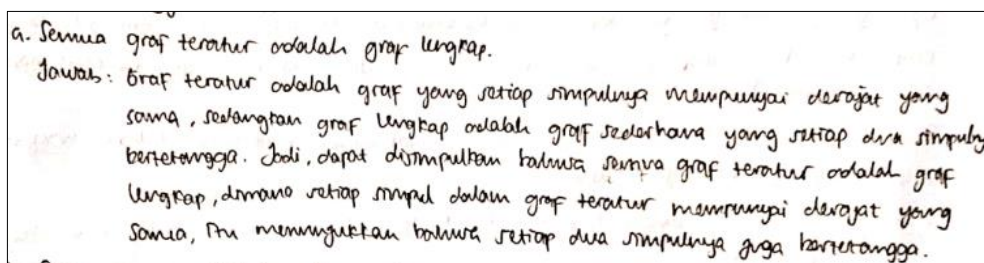 a. Semua graf teratur adalah graf lengkap.
Jawab: Graf teratur adalah graf yang setiap simpulnya mempunyai derajat yang
sama, sedangkan graf lengkap adalah graf sederhana yang setiap dua simpulny
bertetangga. Jadi, dapat disimpulkan bahwa semua graf teratur adalah graf
lengkap, dimana setiap simpul dalam graf teratur mempunyai derajat yang
sama, itu menunjukkan bahwa setiap dua simpulnya juga bertetangga.